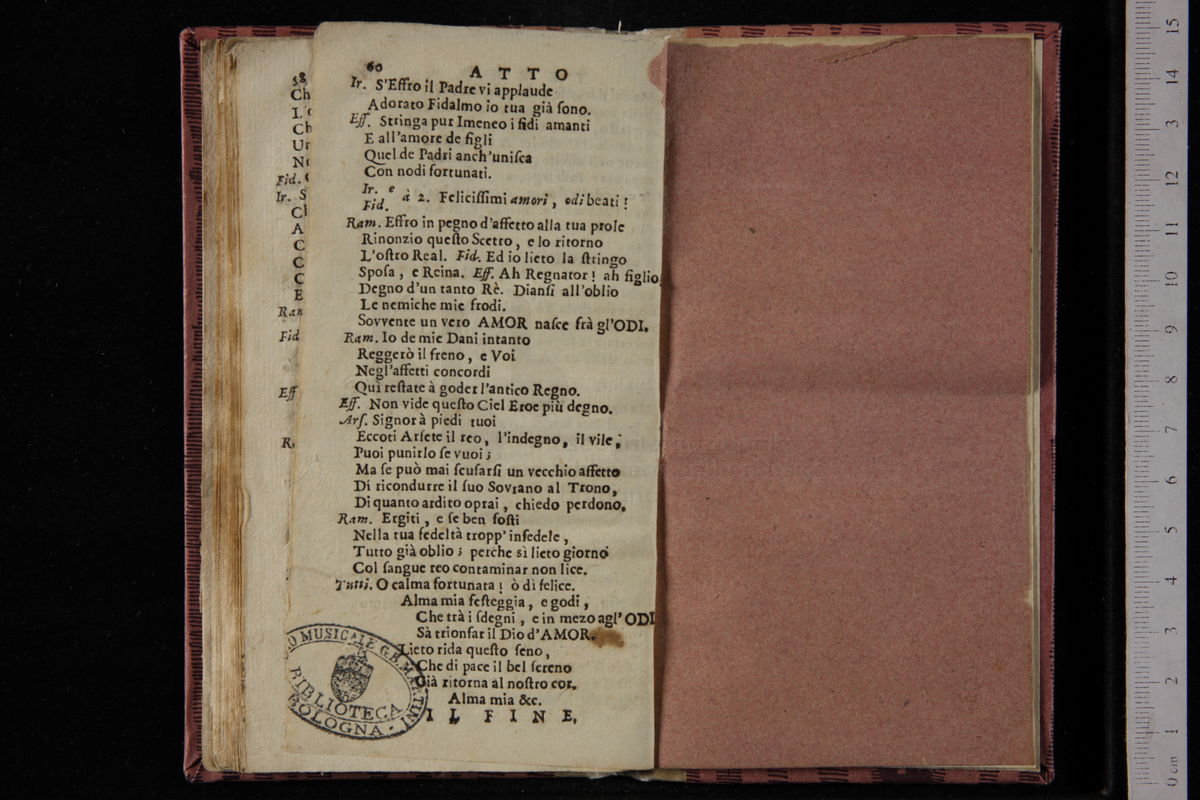 60 ATTO
Ir. S'Effro il Padre vi applaude
Adorato Fidalmo io tua già ſono.
Eff. Stringa pur Imeneo i fidi amanti
E all'amore de figli
Quel de Padri anch'uniſca
Con nodi fortunati.
Ir. e
Fid. à 2. Feliciſſimi amori, odi beati!
Ram. Effro in pegno d'affetto alla tua prole
Rinonzio queſto Scetro, e lo ritorno
L'oſtro Real. Fid. Ed io lieto la ſtringo
Spoſa, e Reina. Eff. Ah Regnator! ah figlio
Degno d'un tanto Rè. Dianſi all'oblio
Le nemiche mie frodi.
Sovvente un vero AMOR naſce frà gl'ODI.
Ram. Io de miei Dani intanto
Reggerò il freno, e Voi
Negl'affetti concordi
Quì reſtate à goder l'antico Regno.
Eff. Non vide queſto Ciel Eroe più degno.
Arſ. Signor à piedi tuoi
Eccoti Arſete il reo, l'indegno, il vile;
Puoi punirlo ſe vuoi;
Ma ſe può mai ſcuſarſi un vecchio affetto
Di ricondurre il ſuo Sovrano al Trono,
Di quanto ardito oprai, chiedo perdono.
Ram. Ergiti, e ſe ben foſti
Nella tua fedeltà tropp' infedele,
Tutto già oblio; perche sì lieto giorno
Col ſangue reo contaminar non lice.
Tutti. O calma fortunata! ò dì felice.
Alma mia feſteggia, e godi,
Che trà i ſdegni, e in mezo agl'ODI
Sà trionfar il Dio d'AMOR.
Lieto rida queſto ſeno,
Che di pace il bel ſereno
Già ritorna al noſtro cor.
Alma mia &c.
IL FINE.
58
Ch
L'o
Ch
Un
No
Fid.
Ir. S
Cl
A
C
C
C
E
Ram
Fid
Eff
R
MUSICALE G.B. MARTINI
BIBLIOTECA
BOLOGNA
15
14
3
12
11
10
9
8
7
6
5
4
3
2
1
0 cm